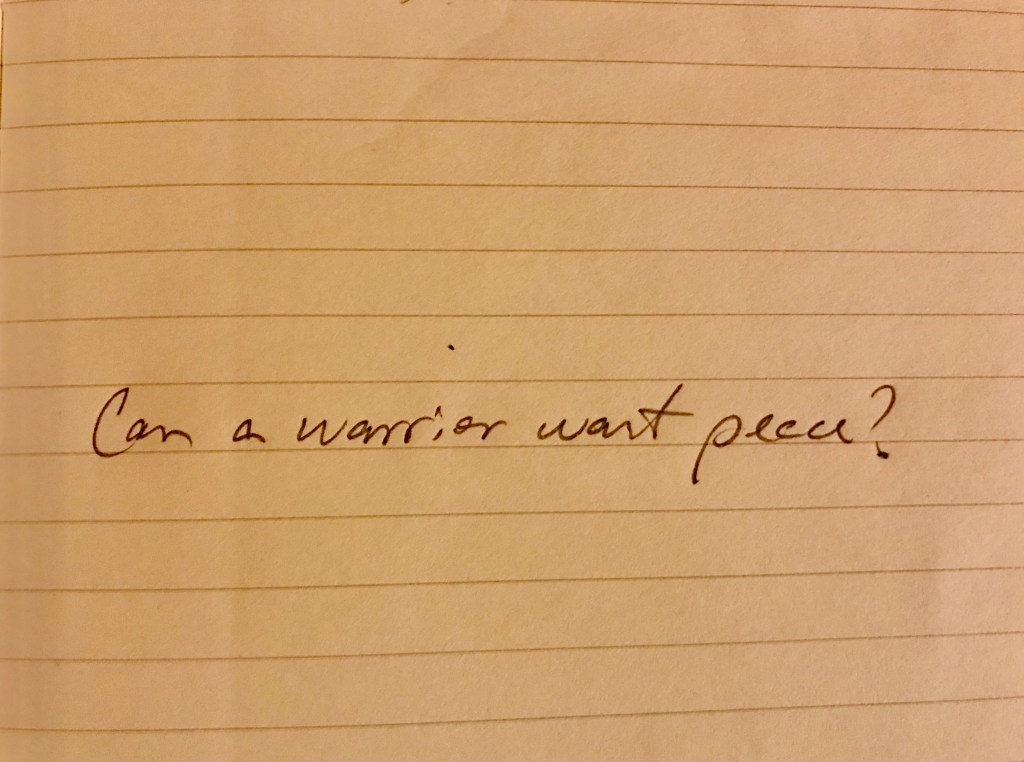 Can a warrior want peace?